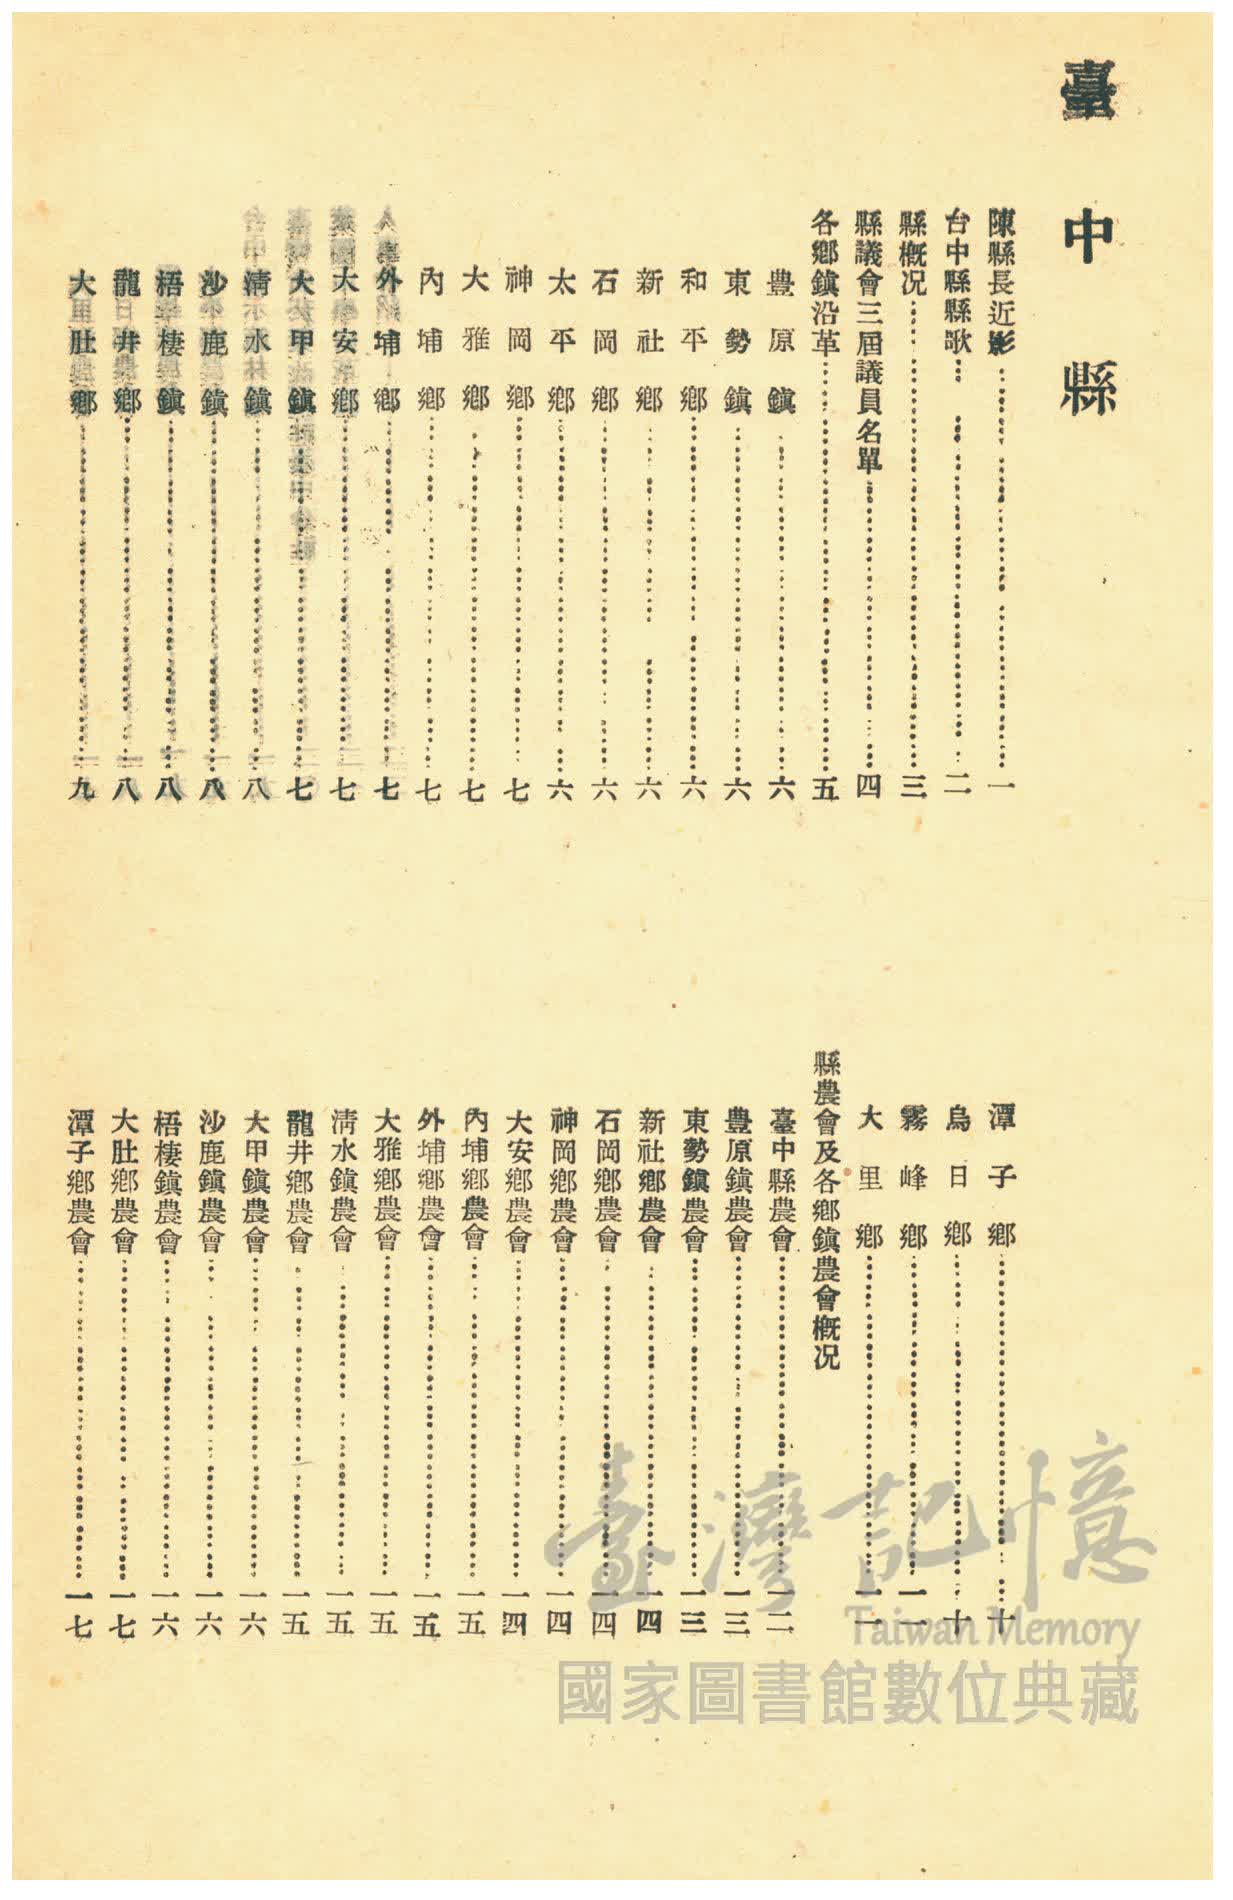 臺中縣
陳縣長近影……一
台中縣縣歌……二
縣概况……三
縣議會三屆議員名單……四
各鄉鎮沿革……五
豐原鎮……六
東勢鎮……六
和平鄉……六
新社鄉……六
石岡鄉……六
太平鄉……六
神岡鄉……七
大雅鄉……七
內埔鄉……七
外埔鄉……七
大安鄉……七
大甲鎮……七
淸水鎮……八
沙鹿鎮……八
梧棲鎮……八
龍井鄉……八
大肚鄉……九
潭子鄉……十
烏日鄉……十
霧峰鄉……一一
大里鄉……一一
縣農會及各鄉鎮農會概况
臺中縣農會……一二
豊原鎮農會……一三
東勢鎮農會……一三
新社鄉農會……一四
石岡鄉農會……一四
神岡鄉農會……一四
大安鄉農會……一四
內埔鄉農會……一五
外埔鄉農會……一五
大雅鄉農會……一五
淸水鎮農會……一五
龍井鄉農會……一五
大甲鎮農會……一六
沙鹿鎮農會……一六
梧棲鎮農會……一六
大肚鄉農會……一七
潭子鄉農會……一七
臺灣記憶
Taiwan Memory
國家圖書館數位典藏